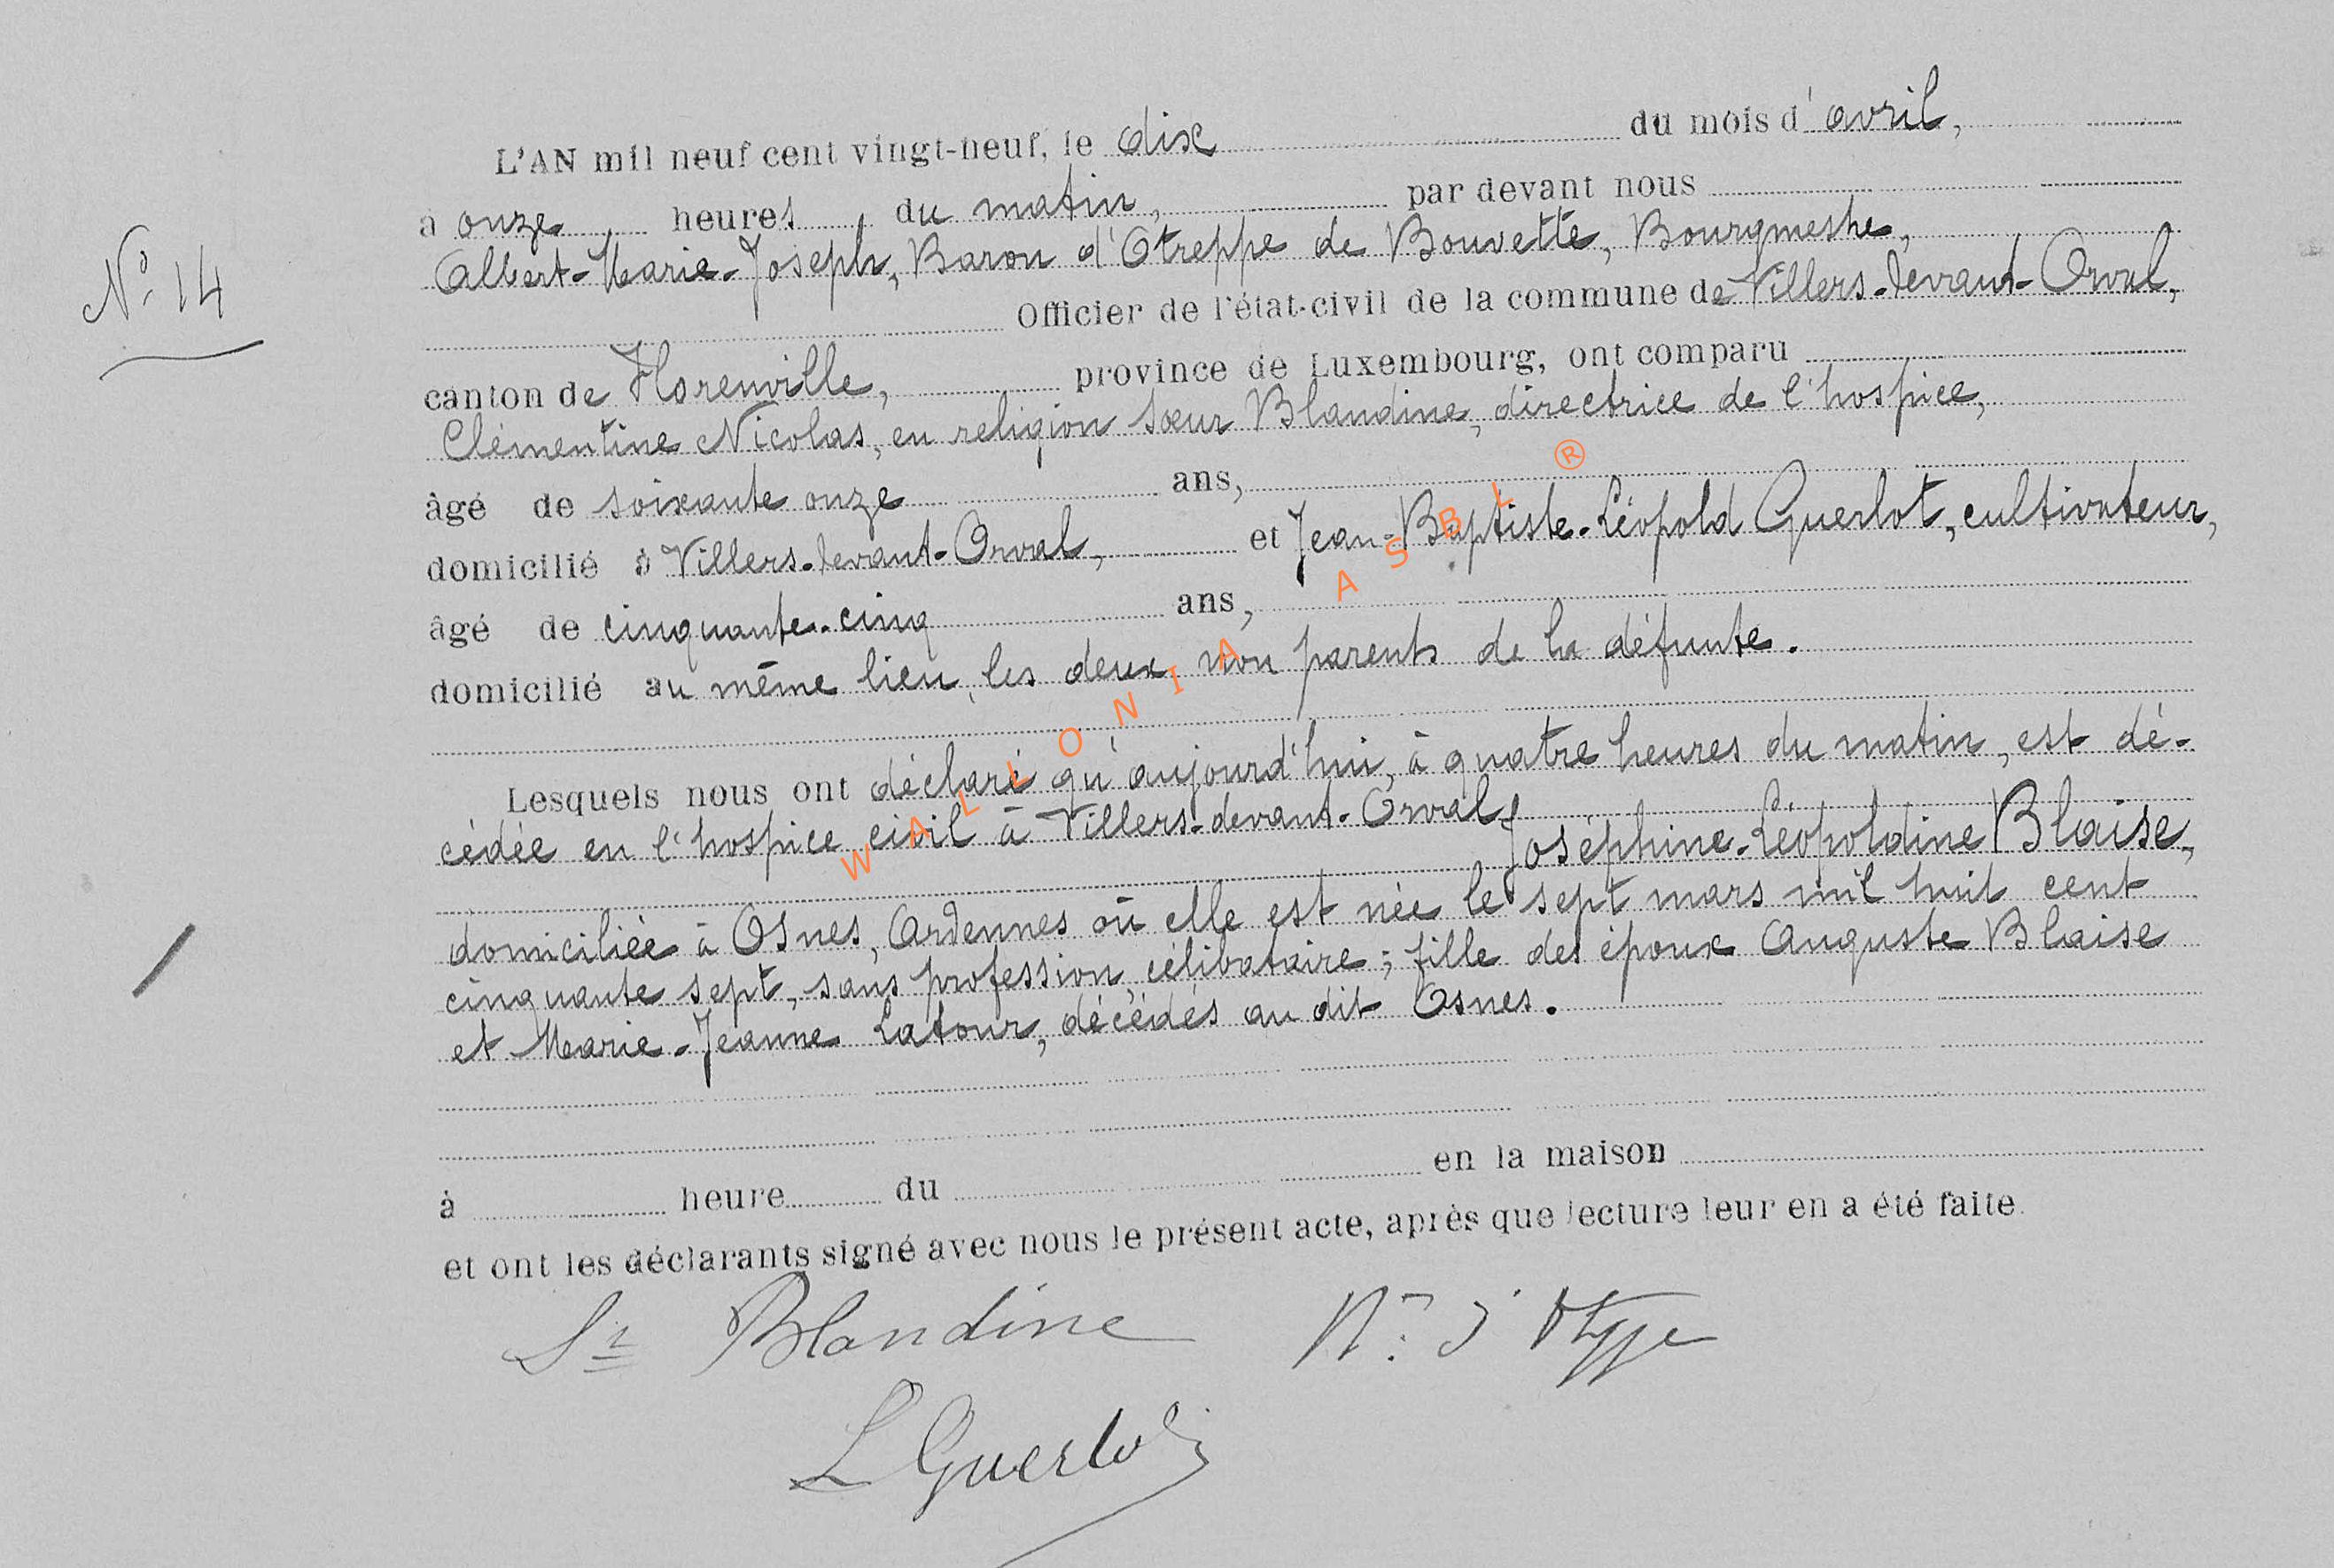 L'AN mil neuf cent vingt-neuf, le dix du mois d'avril,
à onze heures du matin, par devant nous
N° 14
Albert-Marie-Joseph, Baron d'Otreppe de Bouvette, Bourgmestre,
Officier de l'état-civil de la commune de Villers-devant-Orval,
canton de Florenville, province de Luxembourg, ont comparu
Clémentine Nicolas, en religion sœur Blandine, directrice de l'hospice,
âgé de soixante onze ans,
domicilié à Villers-devant-Orval, et Jean-Baptiste-Léopold Guerlot, cultivateur,
âgé de cinquante-cinq ans,
domicilié au même lieu, les deux non parents de la défunte.
Lesquels nous ont déclaré qu'aujourd'hui, à quatre heures du matin, est dé-
cédée en l'hospice civil à Villers-devant-Orval,
Joséphine-Léopoldine Blaise,
domiciliée à Osnes, Ardennes où elle est née le sept mars mil huit cent
cinquante sept, sans profession, célibataire; fille des époux Auguste Blaise
et Marie-Jeanne Latour, décédés au dit Osnes.
à heure du en la maison
et ont les déclarants signé avec nous le présent acte, après que lecture leur en a été faite.
Sr Blandine
L Guerlot
WALLONIA ASBL ®